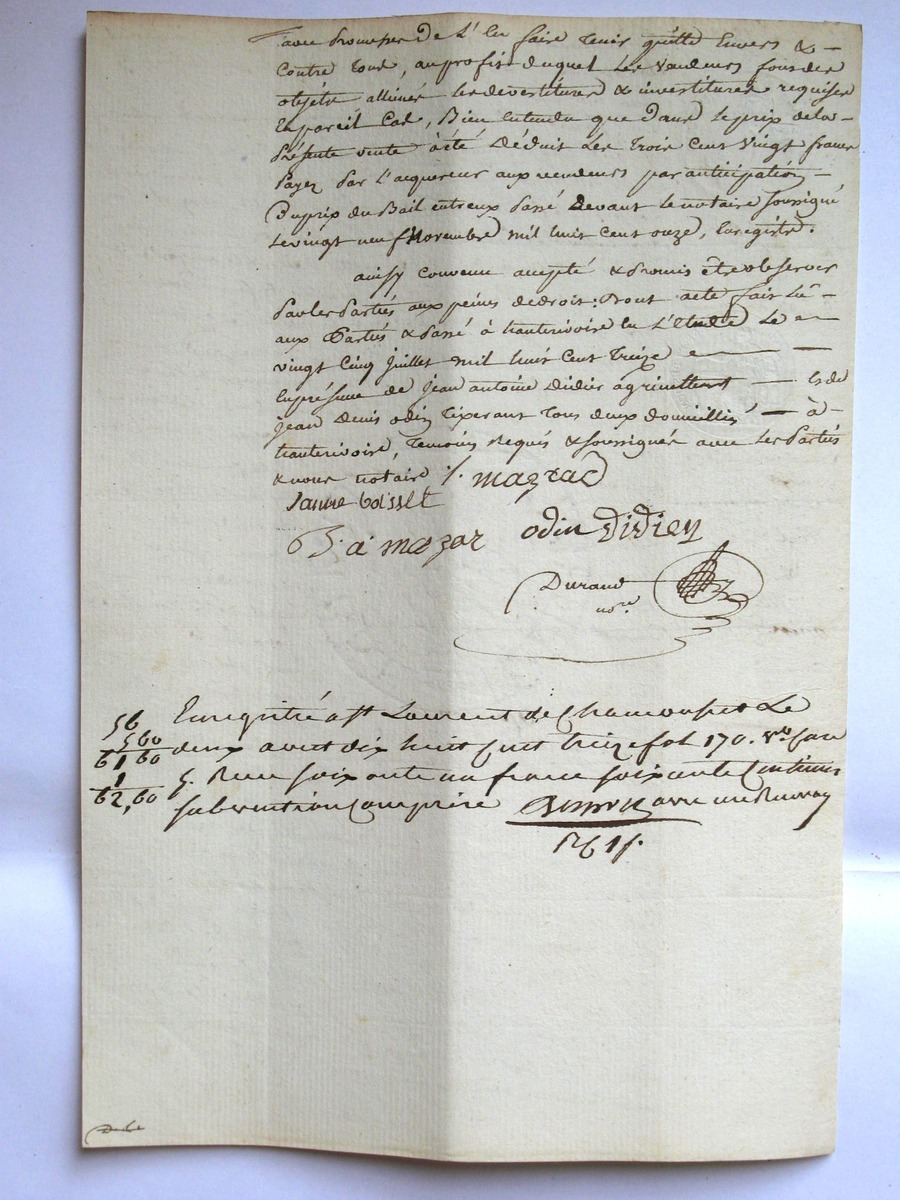 avec promesse de l'en faire tenir quitte envers &
Contre tous, au profit duquel les vandeurs font des
objets alliénés les devestitures & investitures requises
En pareil Cas, Bien entendu que dans le prix de la
présente vente à été déduit les trois cent vingt francs
payez par l'acquereur aux vendeurs par anticipation
Du prix du Bail entreux passé devant le notaire soussigné
le vingt neuf Novembre mil huit cent onze, Enregistré.
ainsy convenu accepté & promis être observer
par les parties aux peines de droit: Dont acte fait lû
aux parties & passé à hauterivoire en l'étude le
vingt cinq juillet mil huit cent treize
En présence de jean antoine didier agriculteur & de
jean denis odin tixerant tous deux domiciliés à
hauterivoire, temoins requis & soussignés avec les parties
& nous notaire j. mazrac
Janne boisset
B. a mazar odin Didier
Durand
no.re
Enregistré a st Laurent de Chamousset Le
deux aout dix huit cent treize fol 170. Vo Case
5. Reçu soixante un francs soixante Centimes
subvention comprise
56
5 60
61 60
1
62,60